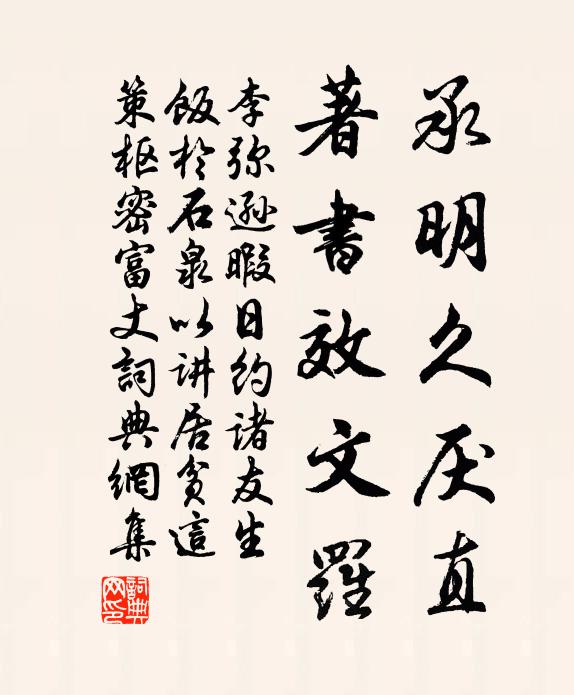 承明久厌直
著書效文羅
李弥遜暇日约诸友生
飯於石泉以讲居贫這
策枢密富丈詞典網集
詞典网印